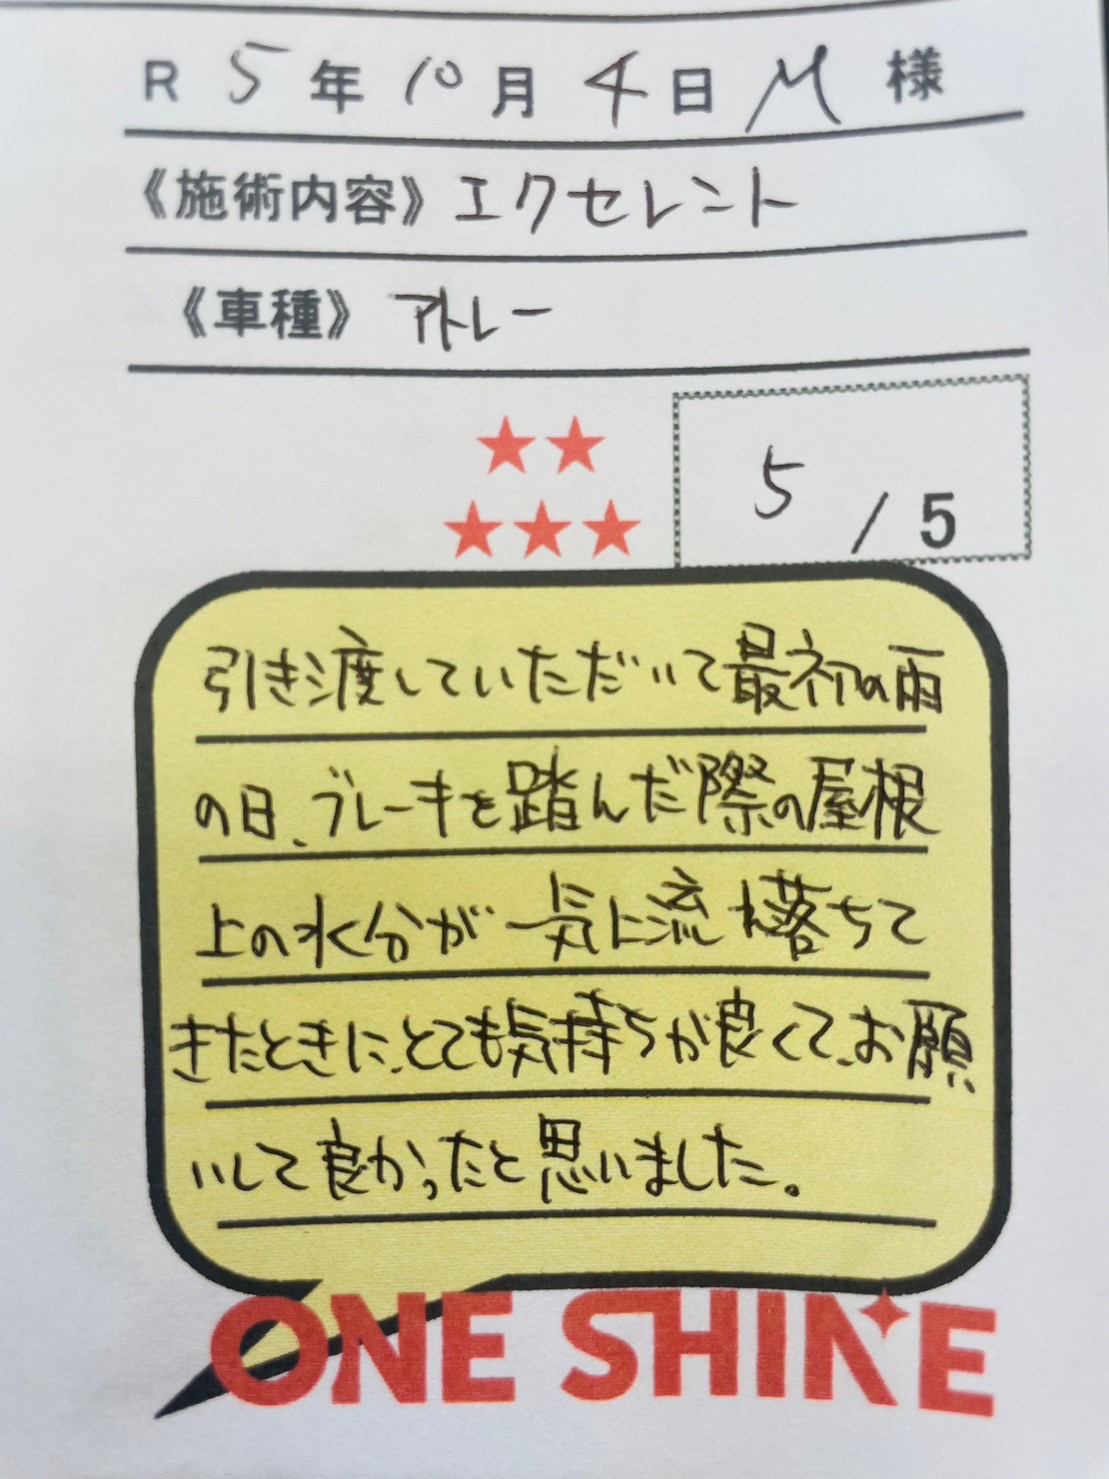 R 5年10月4日 M 様
《施術内容》エクセレント
《車種》アトレー
5 / 5
引き渡していただいて最初の雨
の日、ブレーキを踏んだ際の屋根
上の水分が一気に流れ落ちて
きたときに、とても気持ちが良くて、お願
いして良かったと思いました。
ONE SHINE